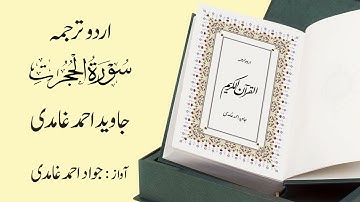 اردو ترجمہ
سُوْرَةُ الْحُجُرٰتِ
جاوید احمد غامدی
آواز : جواد احمد غامدی
اردو ترجمہ
القرآن الکریم
جاوید احمد غامدی